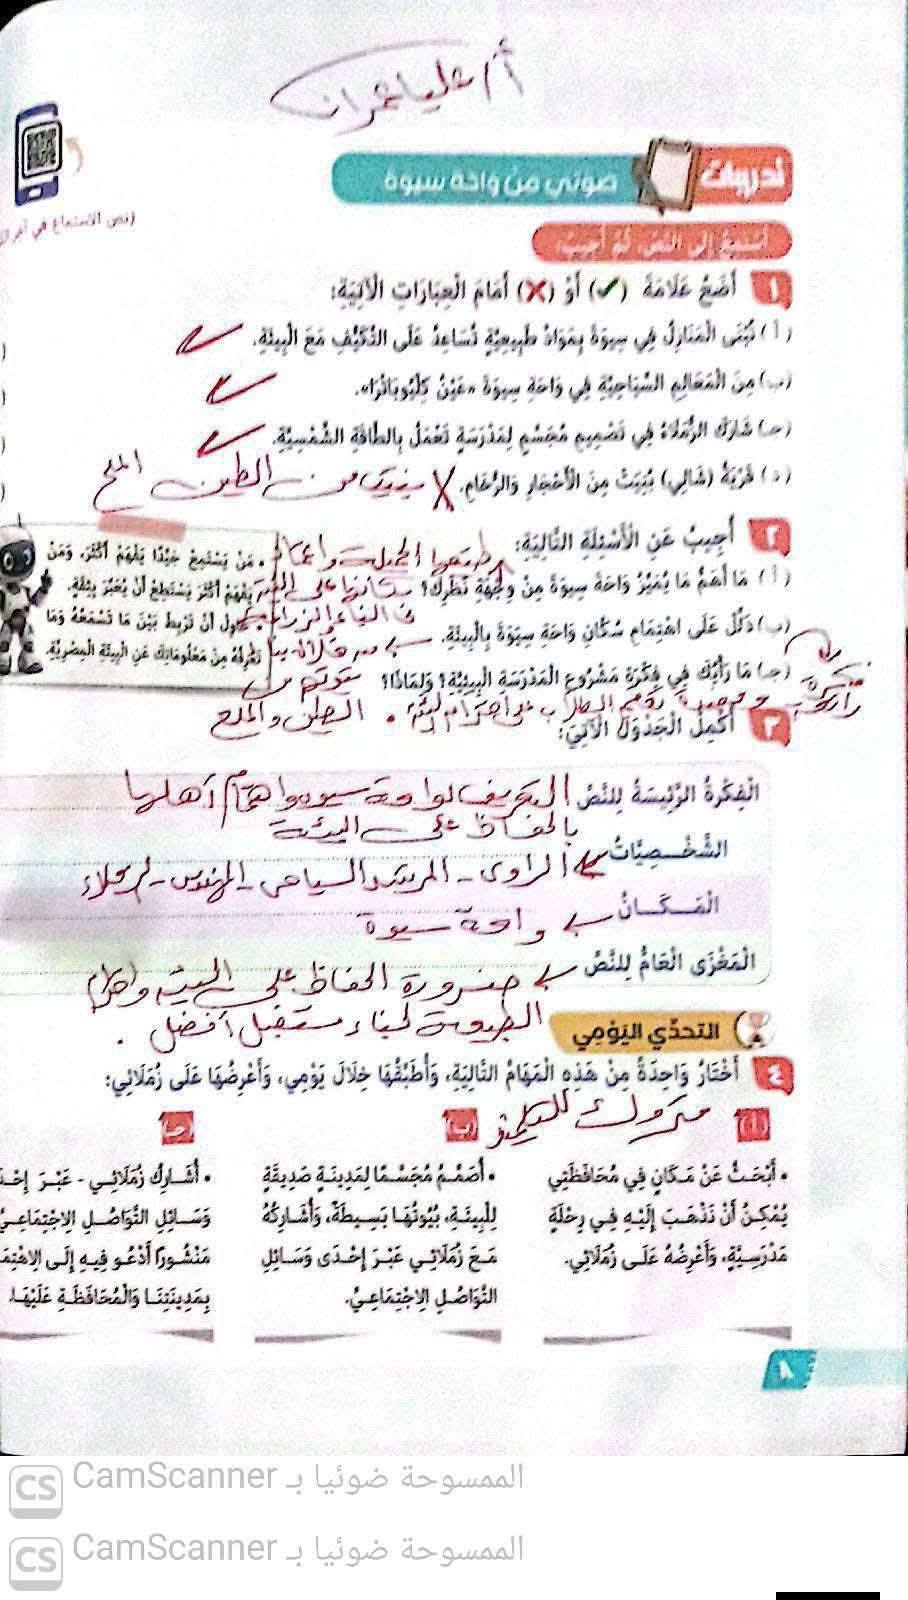 أ/ علياء عمران
تدريبات صوتي من واحة سيوة
(نص الاستماع في
أستمع إلى النص، ثم أجيب:
١ أَضَعُ عَلَامَةَ (✓) أَوْ (✗) أَمَامَ الْعِبَارَاتِ الْآتِيَةِ:
(أ) تُبْنَى الْمَنَازِلُ فِي سِيوَةَ بِمَوَادَّ طَبِيعِيَّةٍ تُسَاعِدُ عَلَى التَّكَيُّفِ مَعَ الْبِيئَةِ. ✓
(ب) مِنَ الْمَعَالِمِ السِّيَاحِيَّةِ فِي وَاحَةِ سِيوَةَ «عَيْنُ كِلْيُوبَاتْرَا». ✓
(جـ) شَارَكَ الزُّمَلَاءُ فِي تَصْمِيمِ مُجَسَّمٍ لِمَدْرَسَةٍ تَعْمَلُ بِالطَّاقَةِ الشَّمْسِيَّةِ. ✓
(د) قَرْيَةُ (شَالِي) بُنِيَتْ مِنَ الْأَحْجَارِ وَالرُّخَامِ. ✗ بنيت من الطين الملح
٢ أُجِيبُ عَنِ الْأَسْئِلَةِ التَّالِيَةِ: طبيعتها الجميلة واعتماد
(أ) مَا أَهَمُّ مَا يُمَيِّزُ وَاحَةَ سِيوَةَ مِنْ وِجْهَةِ نَظَرِكَ؟ سكانها على
فى البناء والزراعة
(ب) دَلِّلْ عَلَى اهْتِمَامِ سُكَّانِ وَاحَةِ سِيوَةَ بِالْبِيئَةِ. من خلال بناء
(جـ) مَا رَأْيُكَ فِي فِكْرَةِ مَشْرُوعِ الْمَدْرَسَةِ الْبِيئِيَّةِ؟ وَلِمَاذَا؟ بيوتهم من
الطين والملح
الطلاب على احترام البيئة.
• مَنْ يَسْتَمِعْ جَيِّدًا يَفْهَمْ أَكْثَرَ، وَمَنْ
يَفْهَمْ أَكْثَرَ يَسْتَطِعْ أَنْ يُغَيِّرَ بِيئَتَهُ.
أَنْ تَرْبِطَ بَيْنَ مَا تَسْمَعُهُ وَمَا
تَعْرِفُهُ مِنْ مَعْلُومَاتِكَ عَنِ الْبِيئَةِ الْمِصْرِيَّةِ.
٣ أُكْمِلُ الْجَدْوَلَ الْآتِيَ:
الْفِكْرَةُ الرَّئِيسَةُ لِلنَّصِّ التعريف بواحة سيوة واهتمام أهلها
بالحفاظ على البيئة
الشَّخْصِيَّاتُ الراوى - المرشد السياحى - المهندس - الزملاء
الْمَكَانُ واحة سيوة
الْمَغْزَى الْعَامُّ لِلنَّصِّ ضرورة الحفاظ على البيئة واحترام
الطبيعة لبناء مستقبل أفضل.
التحدّي اليوْمي
٤ أَخْتَارُ وَاحِدَةً مِنْ هَذِهِ الْمَهَامِّ التَّالِيَةِ، وَأُطَبِّقُهَا خِلَالَ يَوْمِي، وَأَعْرِضُهَا عَلَى زُمَلَائِي:
متروك للتلميذ
(أ)
• أَبْحَثُ عَنْ مَكَانٍ فِي مُحَافَظَتِي
يُمْكِنُ أَنْ نَذْهَبَ إِلَيْهِ فِي رِحْلَةٍ
مَدْرَسِيَّةٍ، وَأَعْرِضُهُ عَلَى زُمَلَائِي.
(ب)
• أُصَمِّمُ مُجَسَّمًا لِمَدِينَةٍ صَدِيقَةٍ
لِلْبِيئَةِ، بُيُوتُهَا بَسِيطَةٌ، وَأُشَارِكُهُ
مَعَ زُمَلَائِي عَبْرَ إِحْدَى وَسَائِلِ
التَّوَاصُلِ الِاجْتِمَاعِيِّ.
(جـ)
• أُشَارِكُ زُمَلَائِي - عَبْرَ
وَسَائِلِ التَّوَاصُلِ الِاجْتِمَاعِيِّ
مَنْشُورًا أَدْعُو فِيهِ إِلَى
بِمَدِينَتِنَا وَالْمُحَافَظَةِ عَلَيْهَا.
٨
الممسوحة ضوئيا بـ CamScanner
الممسوحة ضوئيا بـ CamScanner